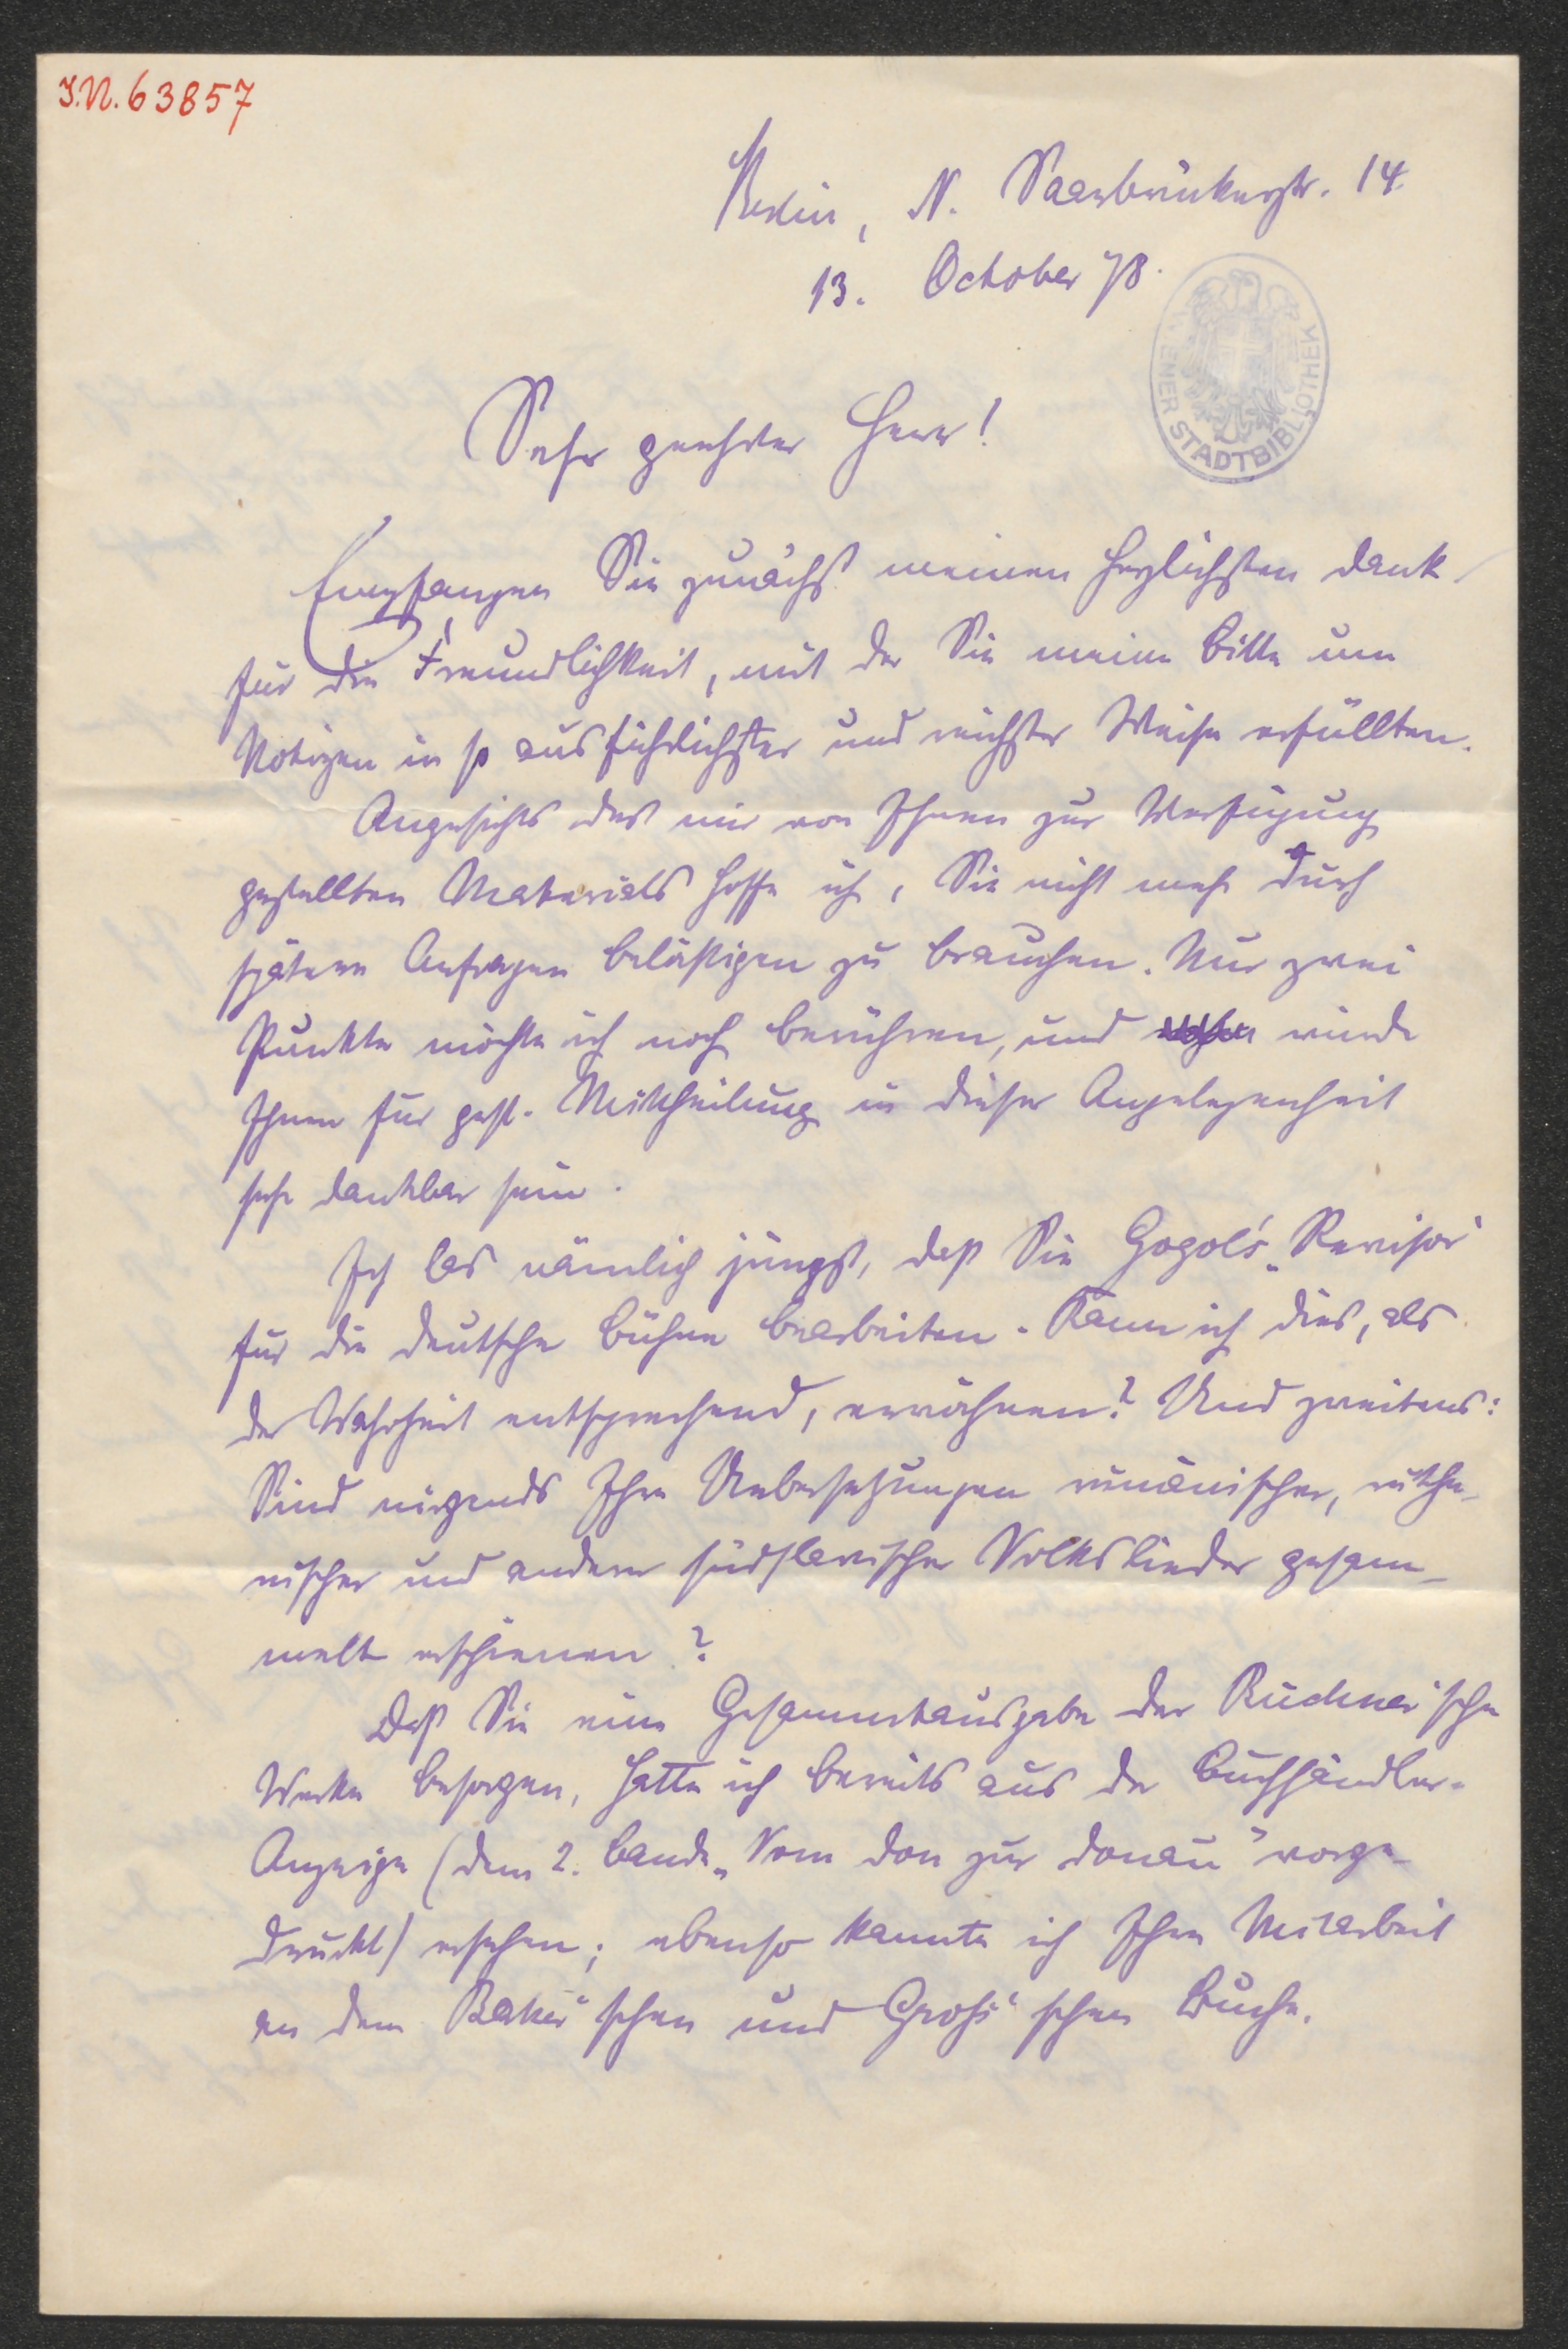 I.N. 63857
Berlin, N. Saarbrückerstr. 14.
13. October 78.
WIENER STADTBIBLIOTHEK
Sehr geehrter Herr!
Empfangen Sie zunächst meinen herzlichsten Dank
für die Freundlichkeit, mit der Sie meine Bitte um
Notizen in so ausführlichster und reichster Weise erfüllten.
Angesichts des mir von Ihnen zur Verfügung
gestellten Materials hoffe ich, Sie nicht mehr durch
spätere Anfragen belästigen zu brauchen. Nur zwei
Punkte möchte ich noch berühren, und würde
Ihnen für gefl. Mittheilung in dieser Angelegenheit
sehr dankbar sein.
Ich las nämlich jüngst, daß Sie Gogol's „Revisor"
für die deutsche Bühne bearbeiten. Kann ich dies, als
der Wahrheit entsprechend, erwähnen? Und zweitens:
Sind nirgends Ihre Uebersetzungen rumänischer, ruthe-
nischer und anderer südslavischer Volkslieder gesam-
melt erschienen?
Daß Sie eine Gesammtausgabe der Büchner'schen
Werke besorgen, hatte ich bereits aus der Buchhändler-
Anzeige (dem 2. Bande „Vom Don zur Donau" vorge-
druckt) ersehen; ebenso kannte ich Ihre Mitarbeit
an dem schen und Groß'schen Buche.